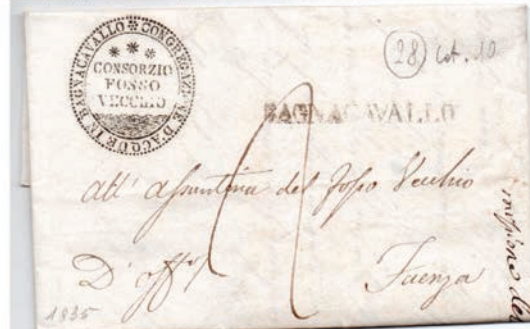 CONGREGAZNE D'ACQUE IN BAGNACAVALLO
CONSORZIO
FOSSO
VECCHIO
28 Cat. 10
BAGNACAVALLO
All' Assunteria del Fosso Vecchio
D' Uff°
Faenza
1835